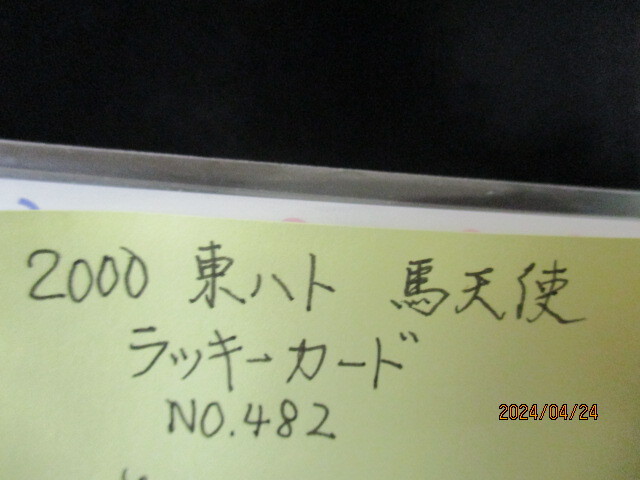 2000 東ハト 馬天使
ラッキーカード
NO.482
2024/04/24